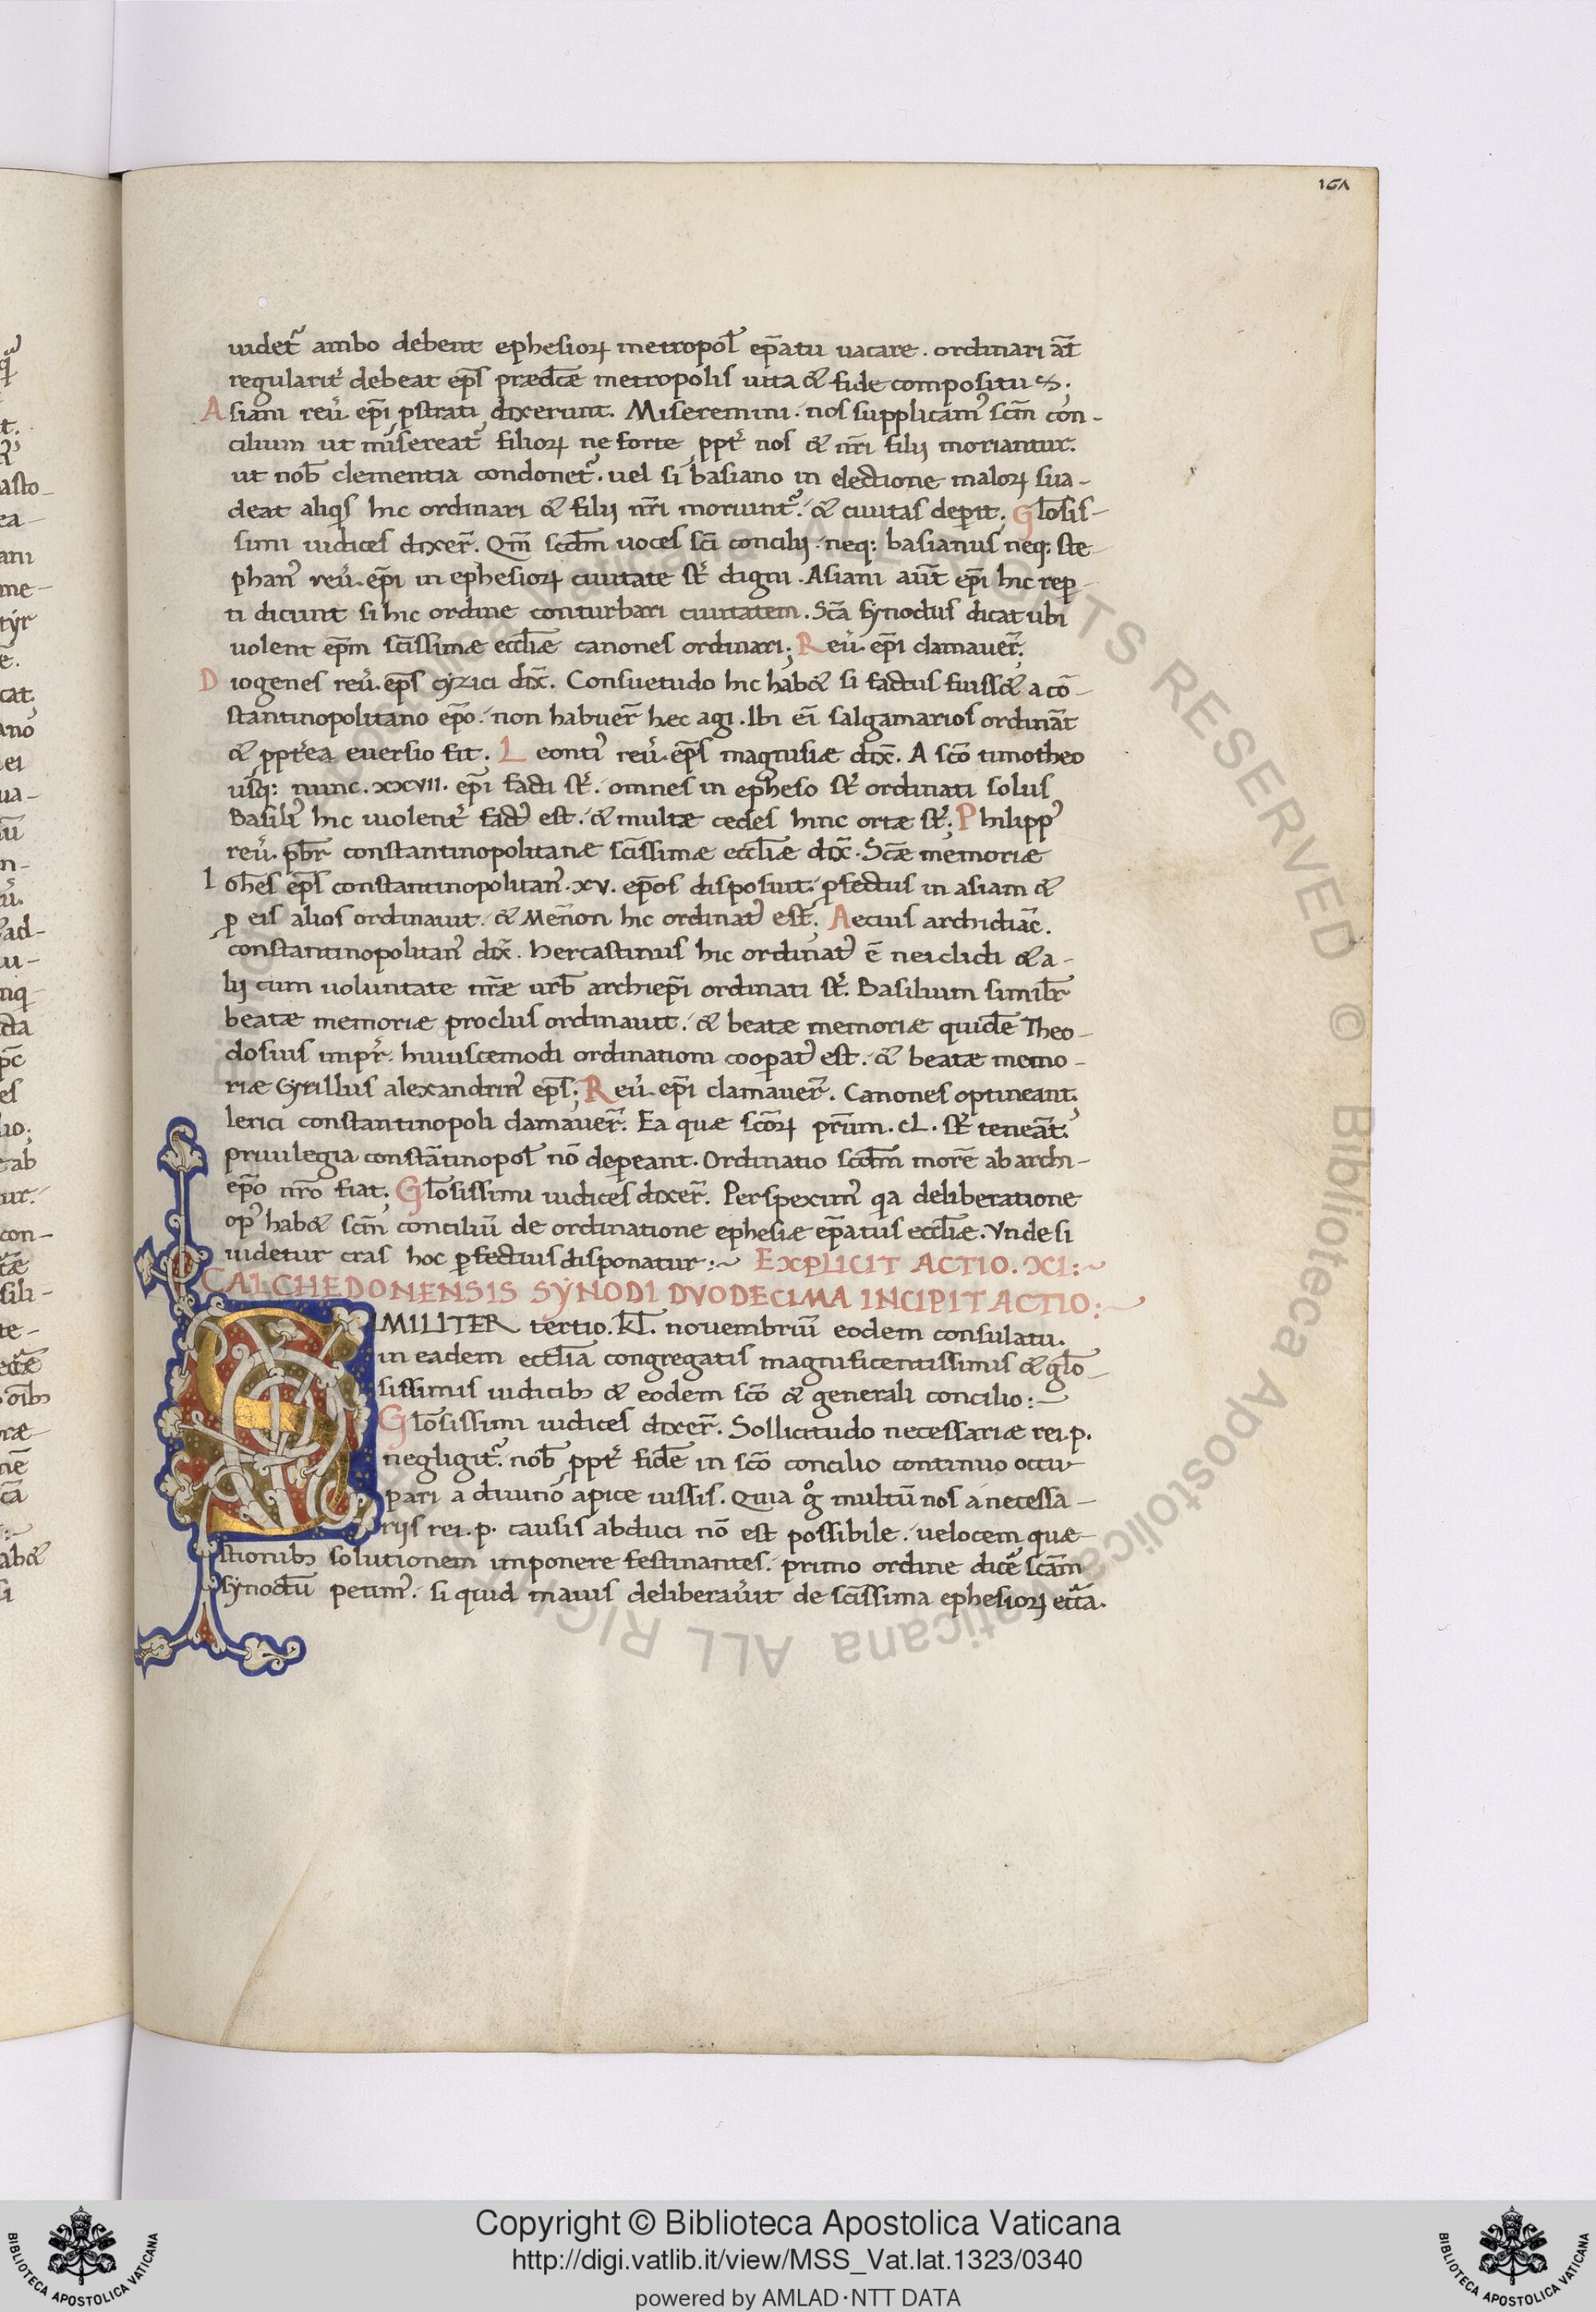 168
uidet᷑ ambo debent ephesioꝝ metropol̄ ep̄atu uacare. ordinari aūt
regularit᷑ debeat ep̄s prædc̄æ metropolis uita & fide compositus;
Asiani reu᷑. ep̄i ꝓstrati dixerunt. Miseremini. nos supplicam᷒ sc̄m con-
cilium ut misereat᷑ filioꝝ ne forte ꝓpt᷑ nos & nr̄i filij moriantur.
ut nob̄ clementia condonet᷑. uel si basiano in electione maloꝝ sua-
deat aliqͥs hic ordinari & filij nr̄i moriunt᷑. & ciuitas deꝑit; Gl̄osis-
simi iudices dixer̄. Qm̄ scdm̄ uoces sc̄i concilij. neq: basianus neq: ste-
phan᷒ reu᷑. ep̄i in ephesioꝝ ciuitate st᷑ digni. Asiani aūt ep̄i hic reꝑ-
ti dicunt si hic ordine conturbari ciuitatem. Sc̄a synodus dicat ubi
uolent ep̄m sc̄issimæ eccl̄iæ canones ordinari; Reu᷑. ep̄i clamauer̄;
Diogenes reu᷑. ep̄s cyzici dix̄. Consuetudo hic hab& si factus fuiss& a cō-
stantinopolitano ep̄o. non habuer̄ hec agi. Ibi ei᷑ salgamarios ordinān̄t
& ꝓpt᷑ea euersio fit. Leonti᷒ reu᷑. ep̄s magnisiæ dix̄. A sc̄o timotheo
usq: nunc. xxvii. ep̄i facti st᷑. omnes in epheso st᷑ ordinati solus
Basili᷒ hic uiolent᷑ fact᷒ est. & multæ cedes hinc ortæ st᷑; Philipp᷒
reu᷑. pb̄r constantinopolitanæ sc̄issimæ eccl̄iæ dix̄. Sc̄æ memoriæ
Ioh̄es ep̄s constantinopolitan᷒. xv. ep̄os disposuit. ꝓfectus in asiam &
ꝓ eis alios ordinauit. & Mem̄non hic ordinat᷒ est; Aecius archidiāc.
constantinopolitan᷒ dix̄. hercastinus hic ordinat᷒ ē neiclidi & a-
lij cum uoluntate nr̄æ urb̄ archiep̄i ordinati st᷑. Basilium similr̄
beatæ memoriæ proclus ordinauit. & beatæ memoriæ quidē Theo-
dosius imp̄r. huiuscemodi ordinationi cooꝑat᷒ est. & beatæ memo-
riæ Cyrillus alexandrin᷒ ep̄s; Reu᷑. ep̄i clamauer̄. Canones optineant;
lerici constantinopoli clamauer̄. Ea quæ sc̄oꝝ pr̄um. cL. st᷑ teneān̄t;
priuilegia constātinopol̄ nō deꝑeant. Ordinatio scdm̄ morē ab archi-
ep̄o nr̄o fiat; Gl̄osissimi iudices dixer̄. Perspexim᷒ qa deliberatione
op᷒ hab& sc̄m conciliū de ordinatione ephesiæ ep̄atus eccl̄iæ. Vnde si
uidetur cras hoc ꝑfectius disponatur:~ EXPLICIT ACTIO. XI:~
CALCHEDONENSIS SYNODI DVODECIMA INCIPIT ACTIO:~
SIMILITER tertio. kl̄. nouembriū eodem consulatu.
in eadem eccl̄ia congregatis magnificentissimis & gl̄o-
sissimis iudicib; & eodem sc̄o & generali concilio:~
Gl̄osissimi iudices dixer̄. Sollicitudo necessariæ rei. p.
negligit᷑. nob̄ ꝓpt᷑ fidē in sc̄o concilio continuo occu-
pari a diuino apice iussis. Quia gͦ multū nos a necessa-
rijs rei. p. causis abduci nō est possibile. uelocem quæ-
stionib; solutionem imponere festinantes. primo ordine dicē sc̄am
synodū petim᷒. si quid maius deliberauit de sc̄issima ephesioꝝ ecc̄a.
Copyright © Biblioteca Apostolica Vaticana
http://digi.vatlib.it/view/MSS_Vat.lat.1323/0340
powered by AMLAD·NTT DATA